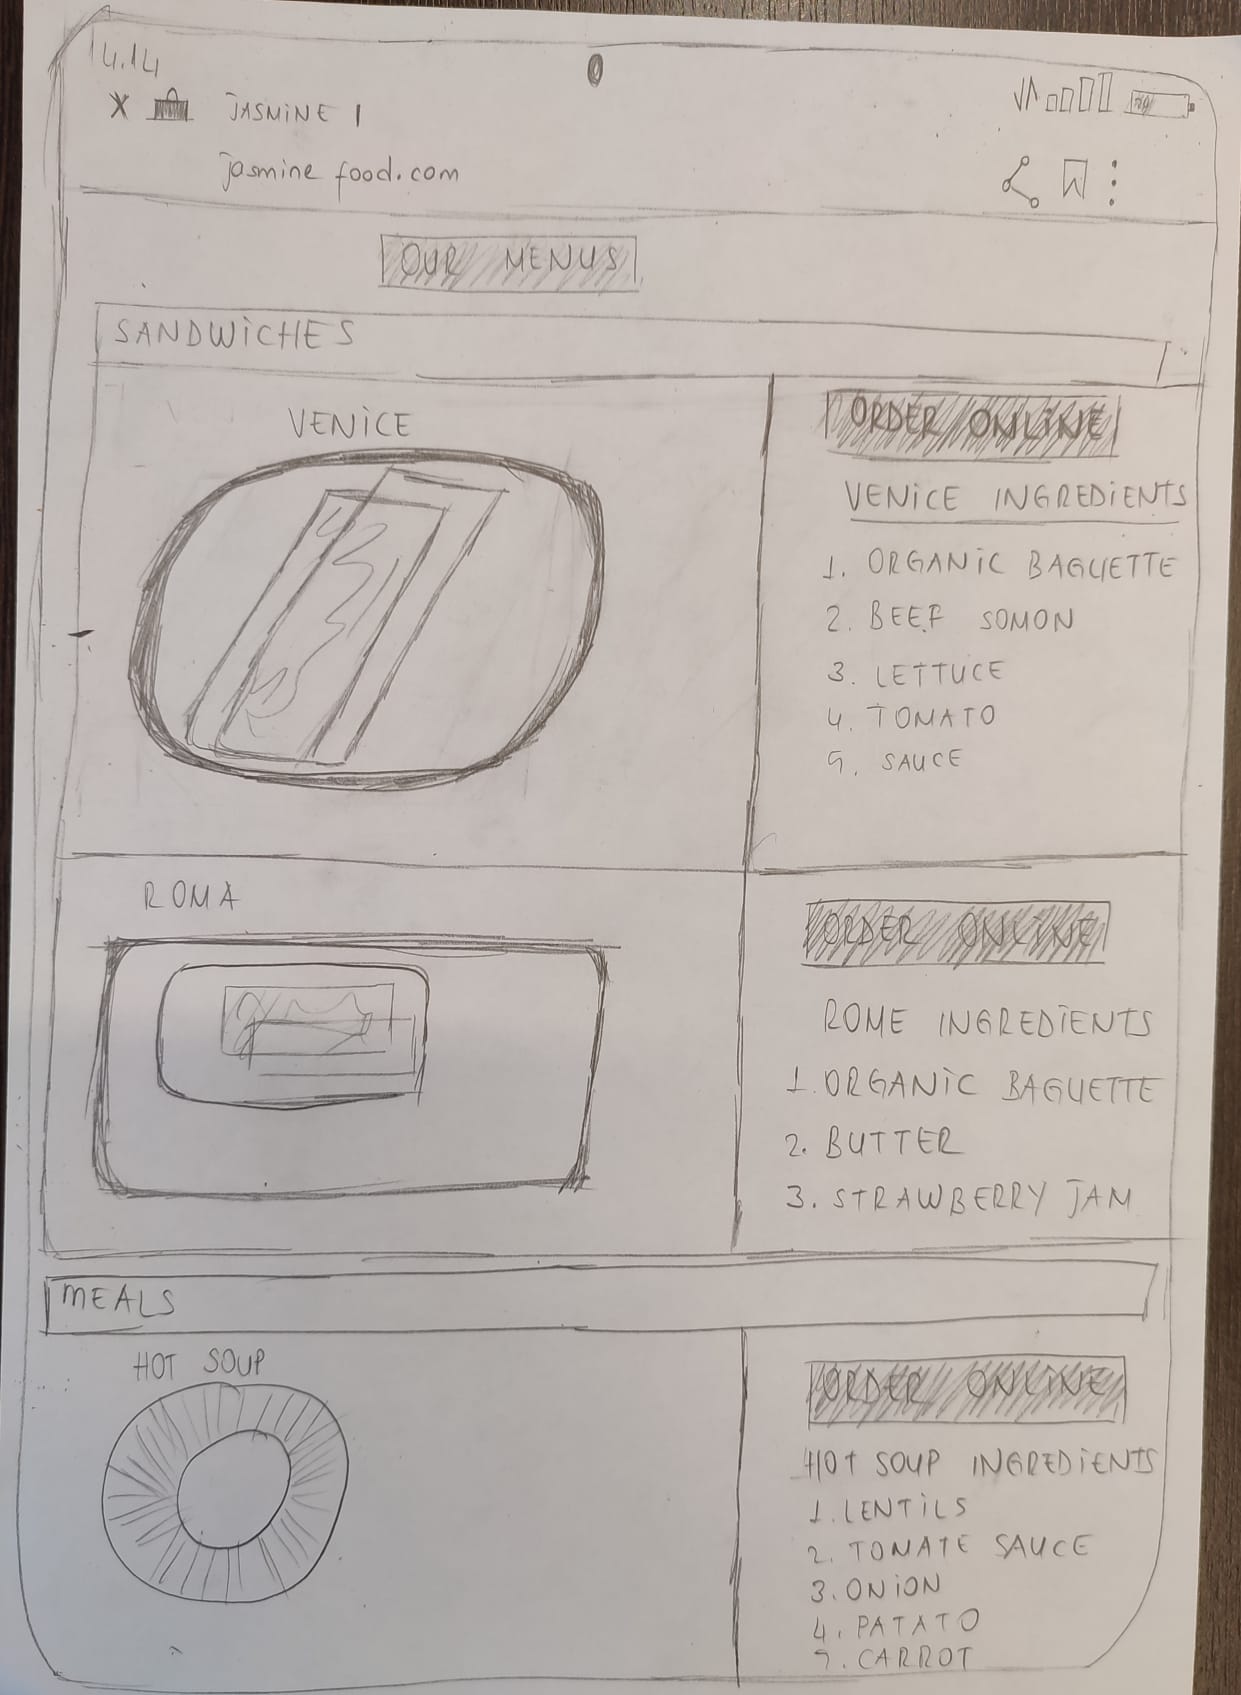 14.14
X JASMINE I
jasmine food.com
OUR MENUS
SANDWICHES
VENICE
ORDER ONLINE
VENICE INGREDIENTS
1. ORGANIC BAGUETTE
2. BEEF SOMON
3. LETTUCE
4. TOMATO
5. SAUCE
ROMA
ORDER ONLINE
ROME INGREDIENTS
1. ORGANIC BAGUETTE
2. BUTTER
3. STRAWBERRY JAM
MEALS
HOT SOUP
ORDER ONLINE
HOT SOUP INGREDIENTS
1. LENTILS
2. TOMATE SAUCE
3. ONION
4. PATATO
5. CARROT